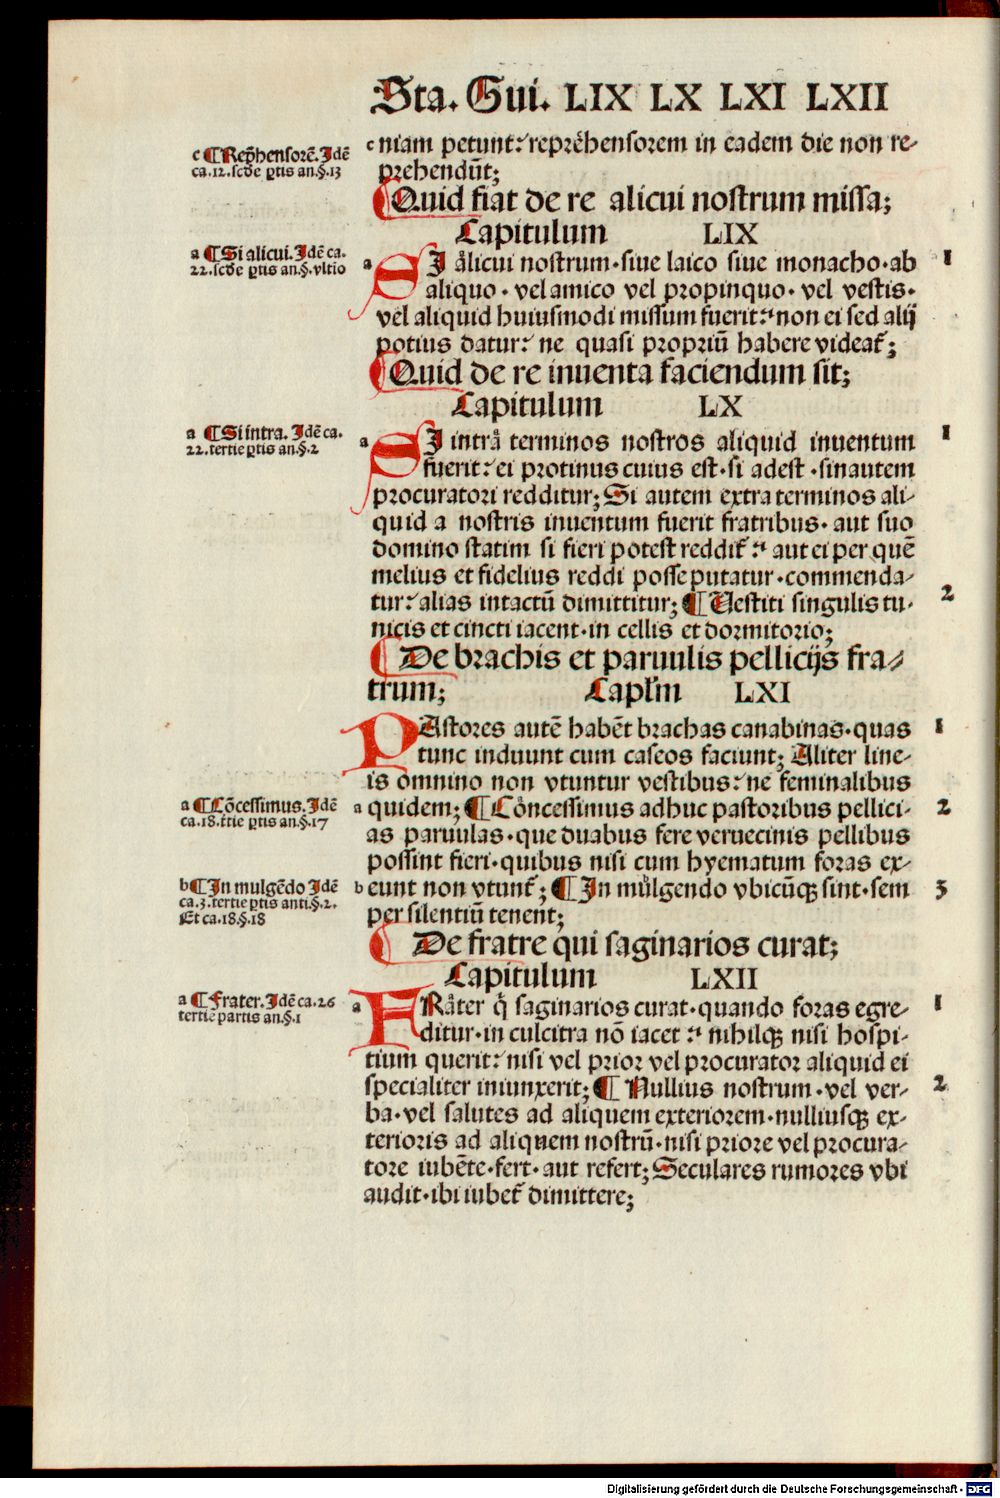 Sta. Gui. LIX LX LXI LXII
c niam petunt: repręhensorem in eadem die non re-
prehendūt;
c ¶ Rep̄hensorē. Idē
ca. 12. scd̄e ꝑtis an. §. 13
Quid fiat de re alicui nostrum missa;
Capitulum LIX
a ¶ Si alicui. Idē ca.
22. scd̄e ꝑtis an. §. vltio
a SI alicui nostrum. siue laico siue monacho. ab 1
aliquo. vel amico vel propinquo. vel vestis.
vel aliquid huiusmodi missum fuerit: non ei sed alij
potius datur: ne quasi propriū habere videat̄;
Quid de re inuenta faciendum sit;
Capitulum LX
a ¶ Si intra. Idē ca.
22. tertie ꝑtis an. §. 2
a SI intra terminos nostros aliquid inuentum 1
fuerit: ei protinus cuius est. si adest. sinautem
procuratori redditur; Si autem extra terminos ali-
quid a nostris inuentum fuerit fratribus. aut suo
domino statim si fieri potest reddit̄: aut ei per quē
melius et fidelius reddi posse putatur. commenda-
tur: alias intactū dimittitur; ¶ Vestiti singulis tu- 2
nicis et cincti iacent. in cellis et dormitorio;
¶ De brachis et paruulis pellicijs fra-
trum; Capl̄m LXI
PAstores autē habēt brachas canabinas. quas 1
tunc induunt cum caseos faciunt; Aliter line-
is omnino non vtuntur vestibus: ne feminalibus
a ¶ Cōcessimus. Idē
ca. 18. t̄tie ꝑtis an. §. 17
a quidem; ¶ Concessimus adhuc pastoribus pellici- 2
as paruulas. que duabus fere veruecinis pellibus
possint fieri. quibus nisi cum hyematum foras ex-
b ¶ In mulgēdo Idē
ca. 3. tertie ꝑtis anti. §. 2.
Et ca. 18. §. 18
b eunt non vtunt̄; ¶ In mulgendo vbicūqꝫ sint. sem 3
per silentiū tenent;
¶ De fratre qui saginarios curat;
Capitulum LXII
a ¶ Frater. Idē ca. 26
tertie partis an. §. 1
a FRater q̄ saginarios curat. quando foras egre- 1
ditur. in culcitra nō iacet: nihilqꝫ nisi hospi-
tium querit: nisi vel prior vel procurator aliquid ei
specialiter iniunxerit; ¶ Nullius nostrum. vel ver- 2
ba. vel salutes ad aliquem exteriorem. nulliusqꝫ ex-
terioris ad aliquem nostrū. nisi priore vel procura-
tore iubēte. fert. aut refert; Seculares rumores vbi
audit. ibi iubet̄ dimittere;
Digitalisierung gefördert durch die Deutsche Forschungsgemeinschaft - DFG